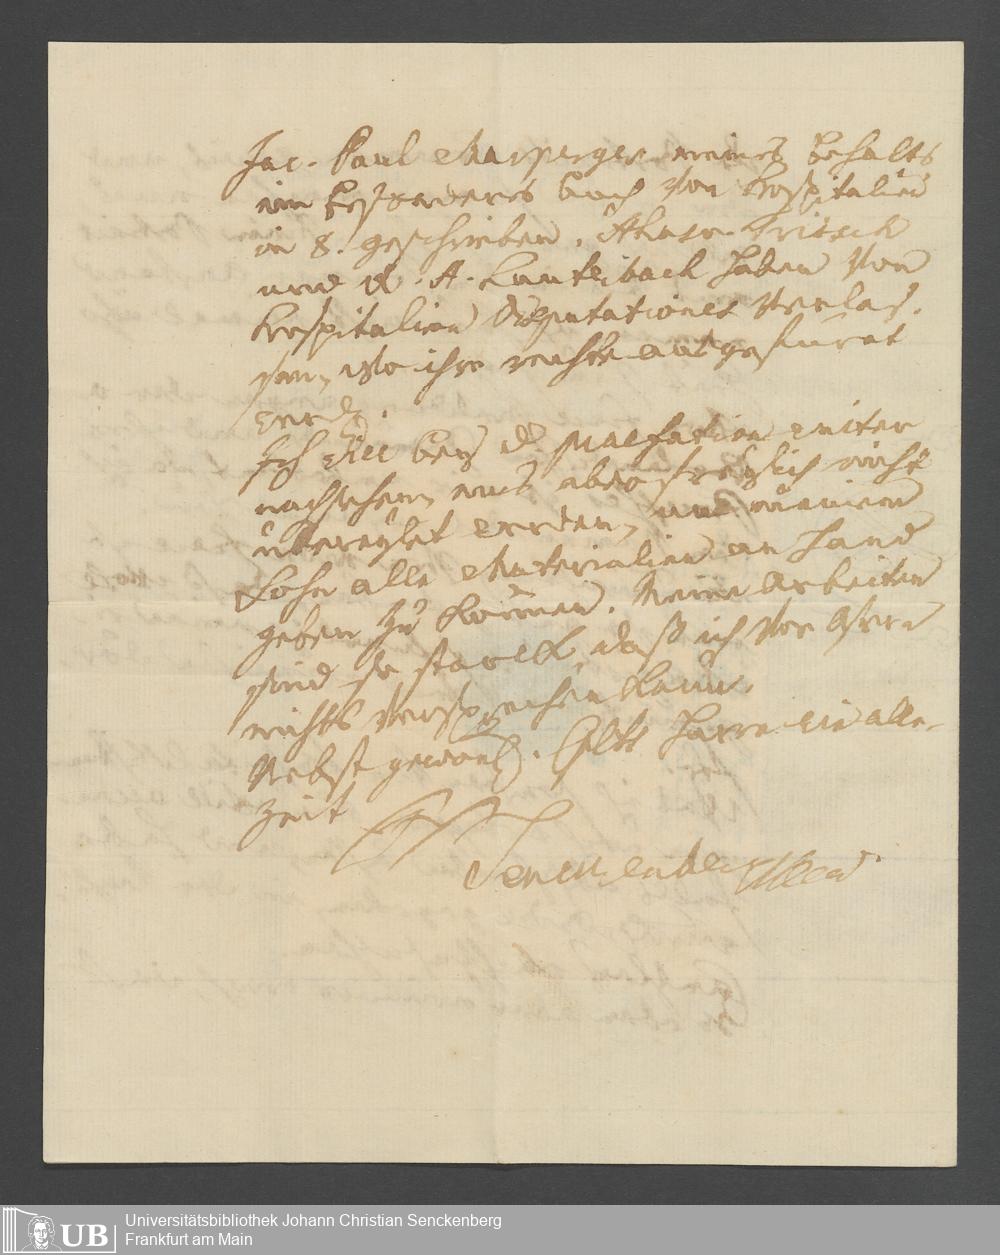 Jac. Paul Marperger meines behalts
ein besonderes buch von hospitalien
in 8. geschrieben. Ahasv. Fritsch
und A. Lauterbach haben von
hospitalien Disputationes verlas¬
sen, wo ihre rechte ausgeführet
werd.
Ich will bey weiter
nachsehen, muß aber freylich nicht
übereylet werden, um meinem
alle Materialien an Hand
geben zu können. Meine arbeiten
sind so starck, daß ich vor Ostern
nichts versprechen kann.
Nebst
zeit
Senckenberg
Universitätsbibliothek Johann Christian Senckenberg
Frankfurt am Main
UB